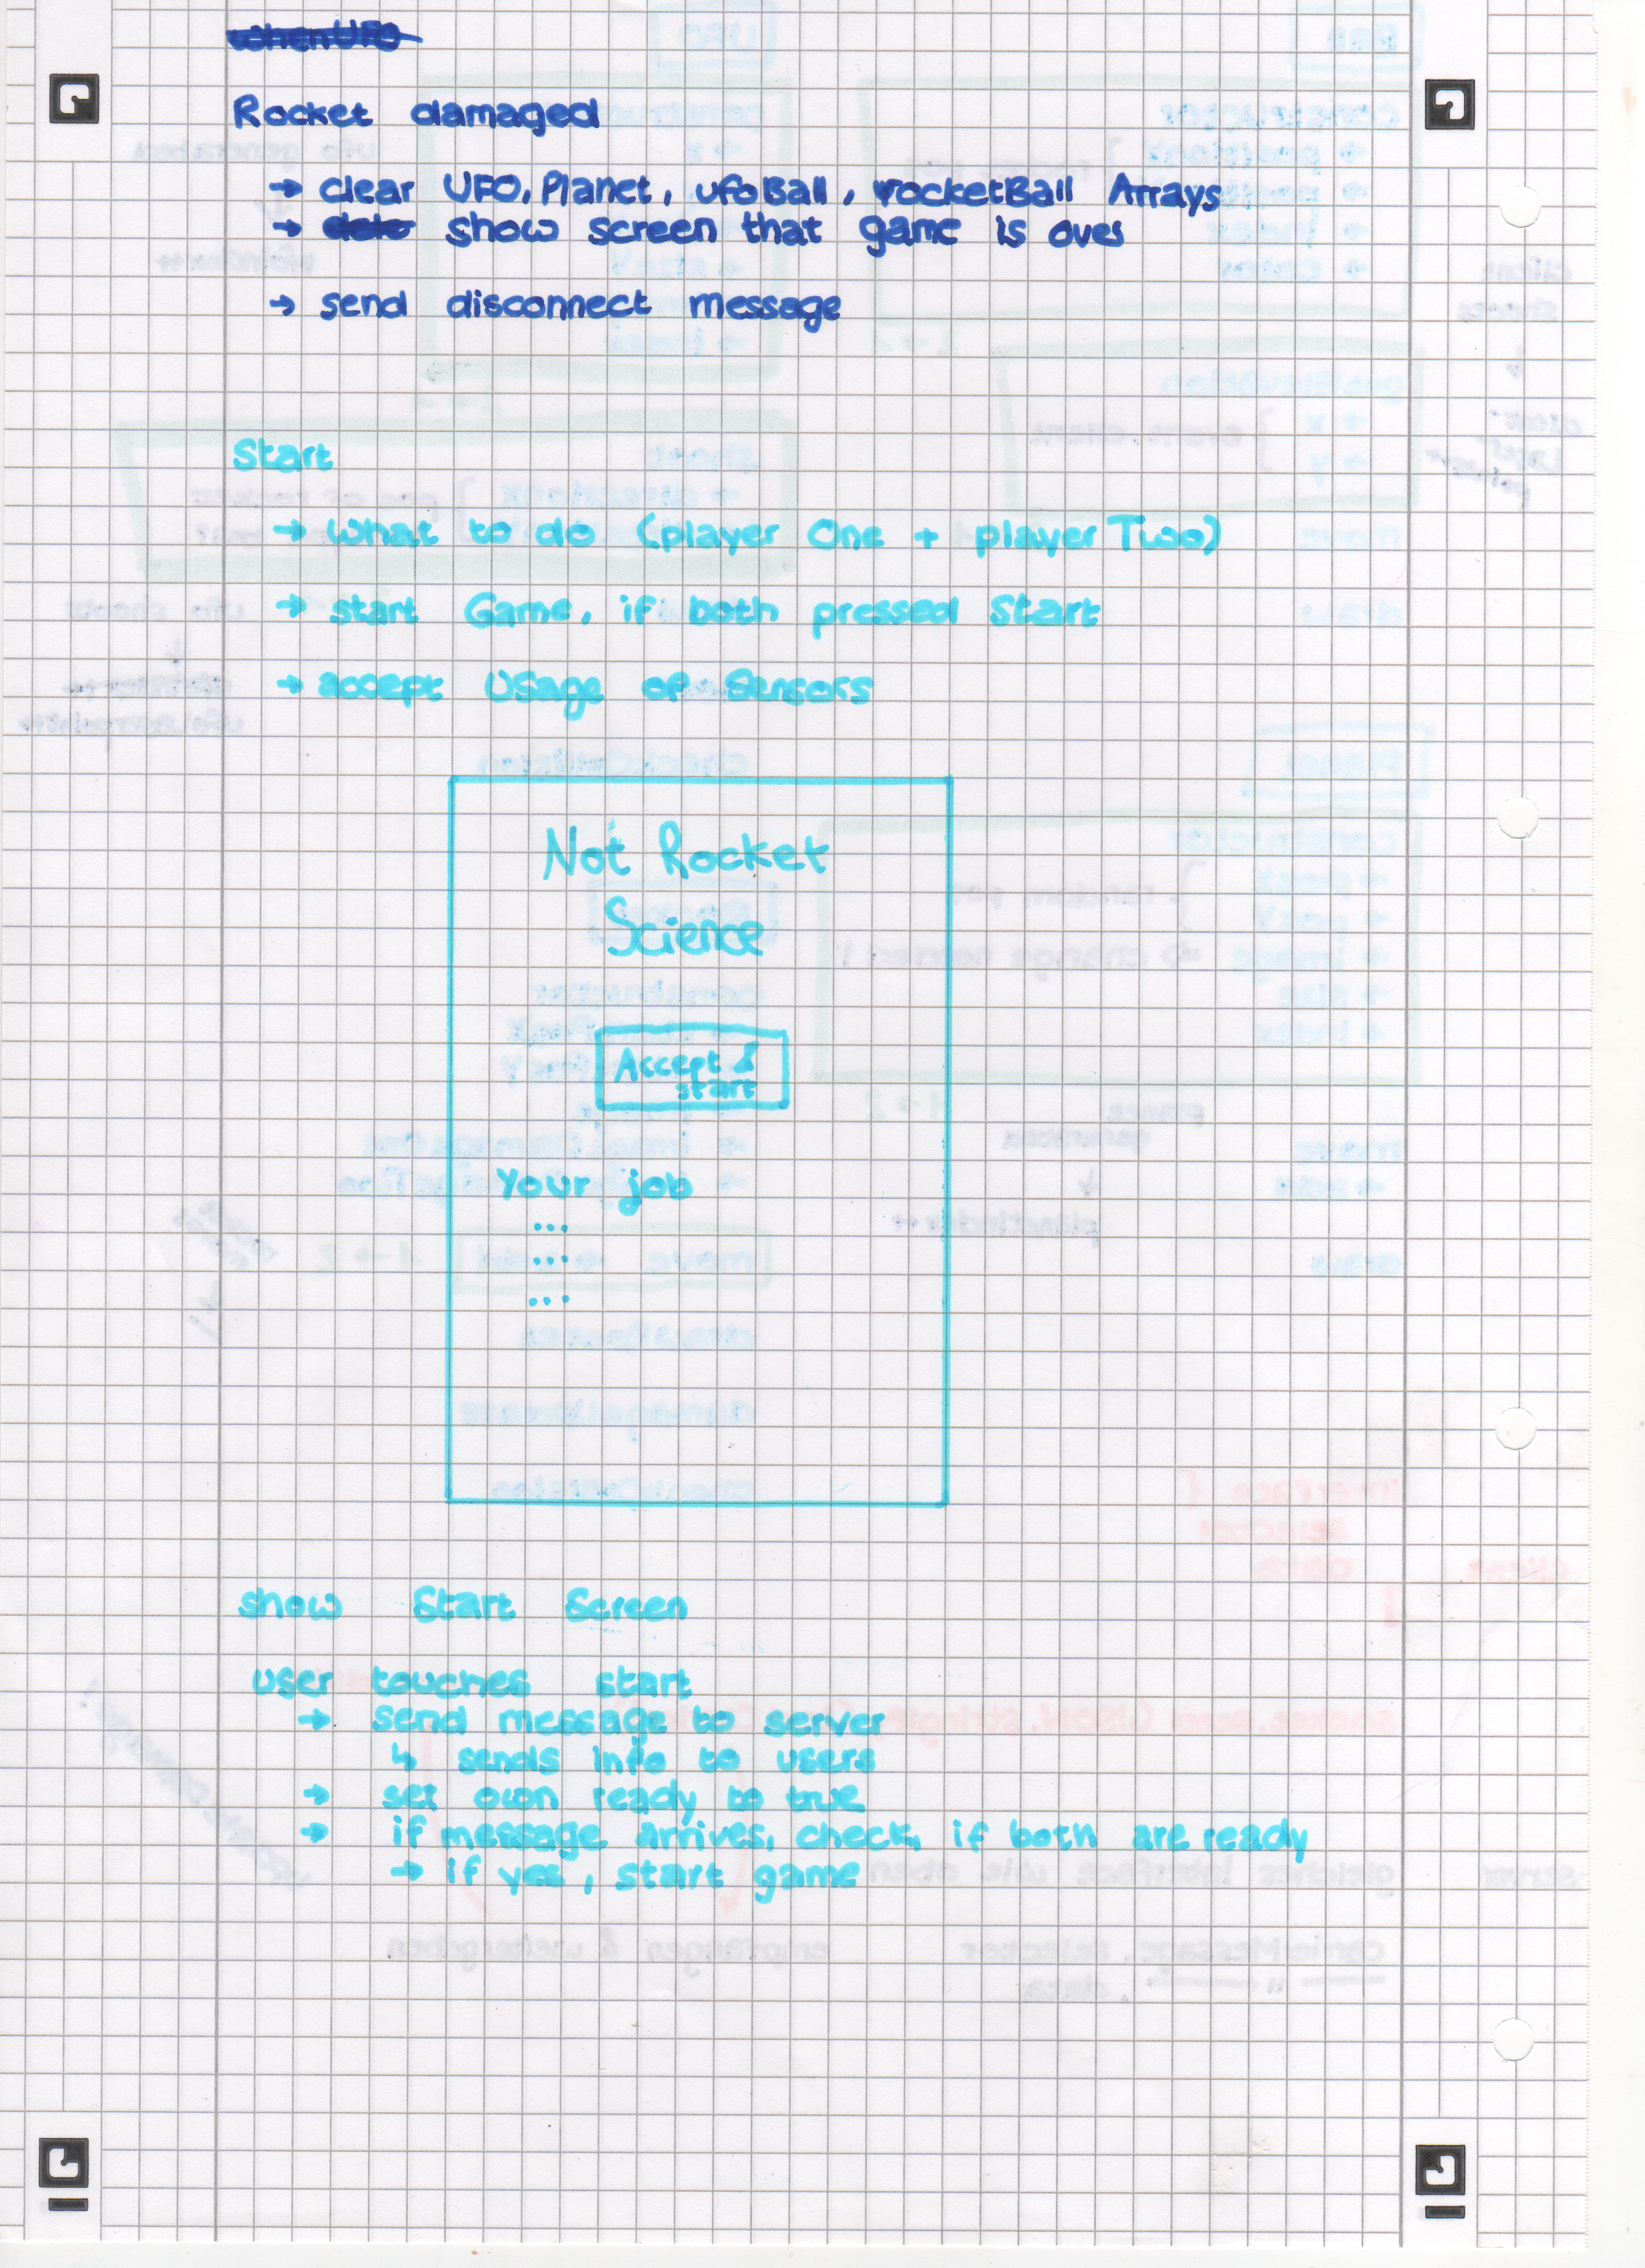 when UFO
Rocket damaged
→ clear UFO, Planet, ufoBall, rocketBall Arrays
→ show screen that game is over
→ send disconnect message
Start
→ what to do (player One + player Two)
→ start Game, if both pressed Start
→ accept Usage of Sensors
Not Rocket
Science
Accept &
start
Your job
...
...
...
show Start Screen
user touches start
→ send message to server
↳ sends info to users
→ set own ready to true
→ if message arrives, check, if both are ready
→ if yes, start game